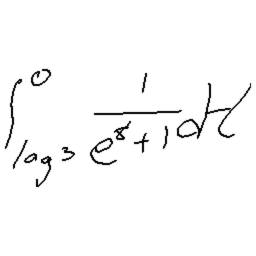 \int_{\log 3}^{0} \frac{1}{e^{x}+1} dx